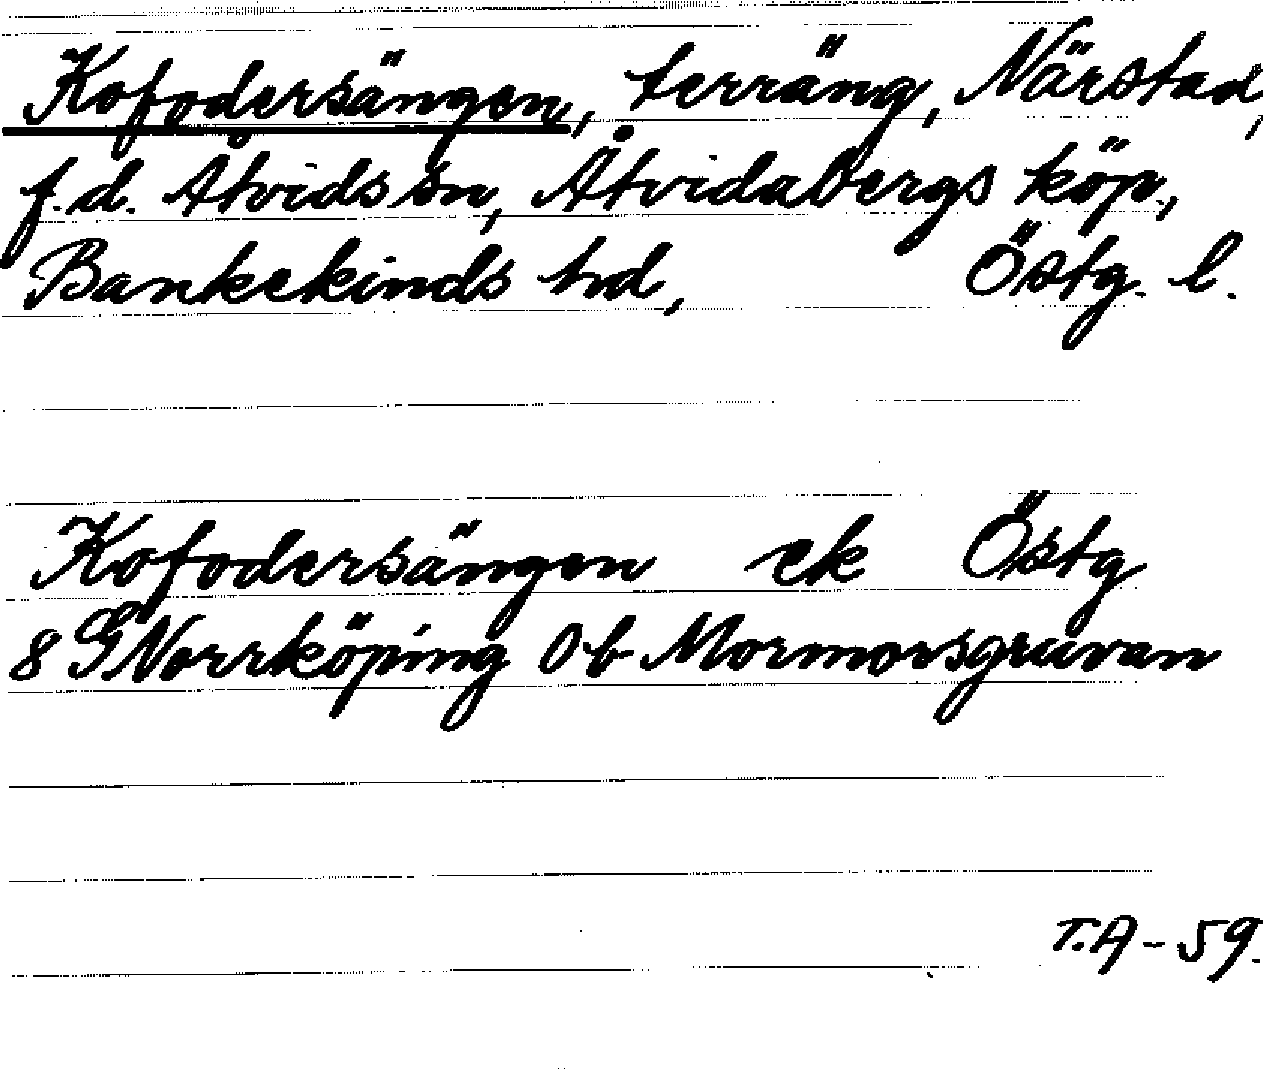 Kofodersängen, terräng, Närstad,
f.d. Åtvids sn, Åtvidabergs köp.,
Bankekinds hd, Östg. l.
Kofodersängen ek Östg
8 G Norrköping 0b Mormorsgruvan
T.A-59.